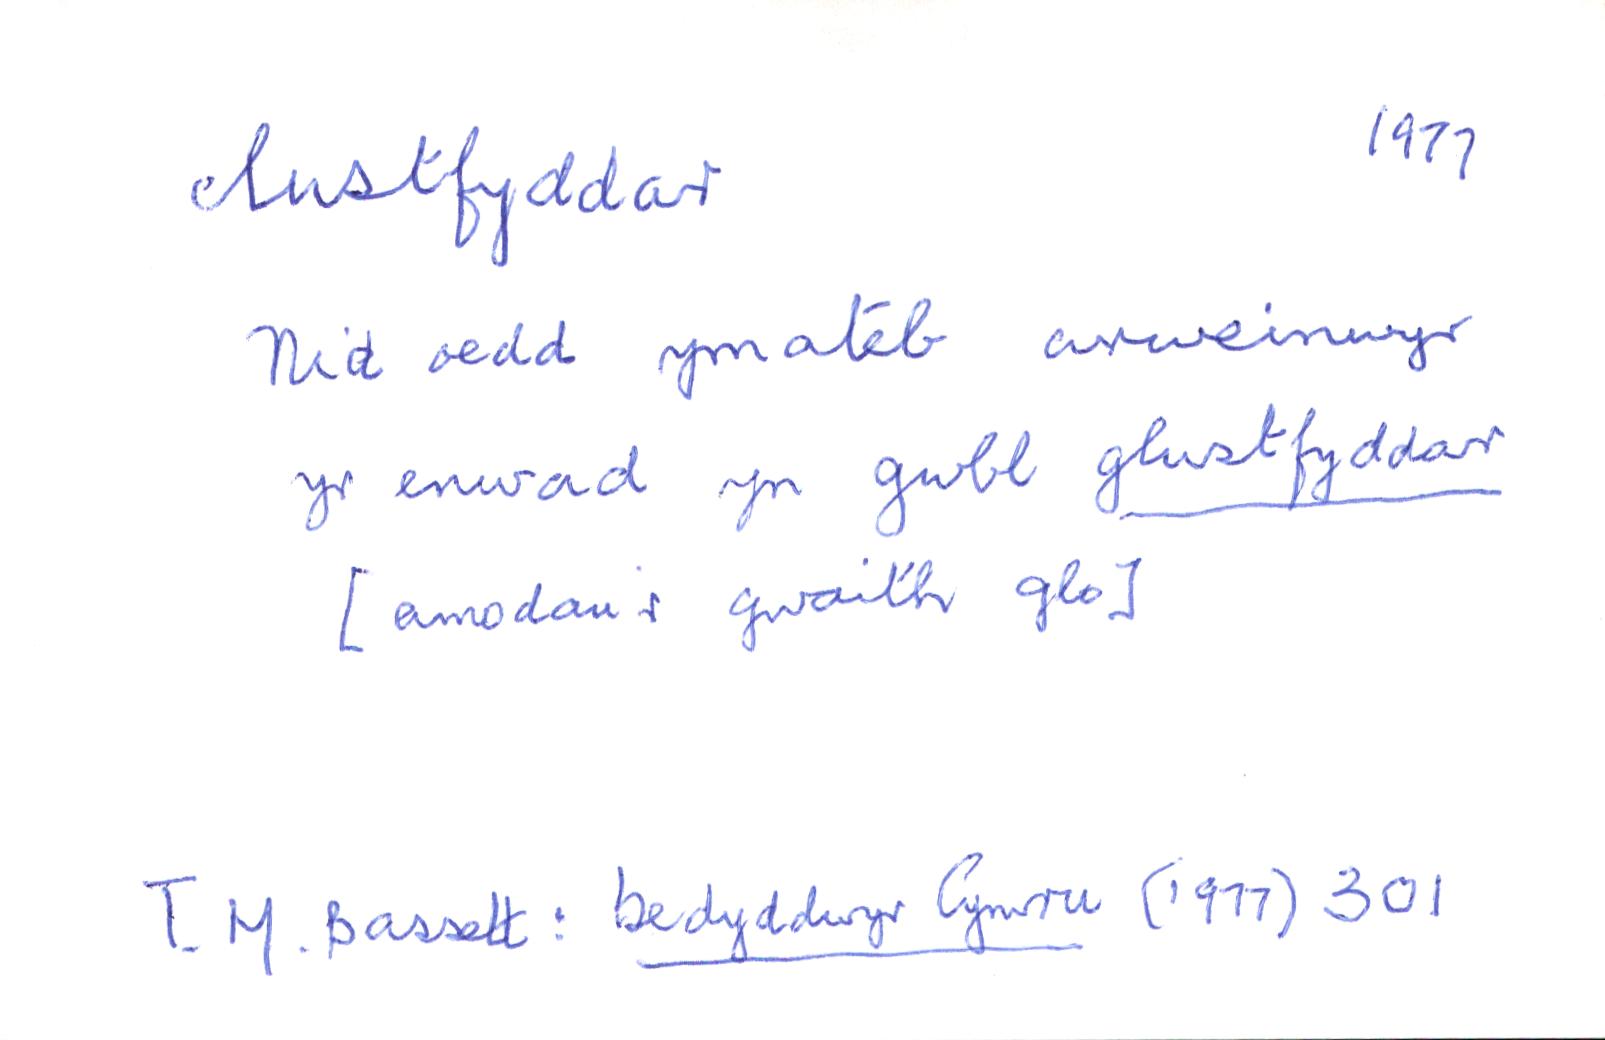 clustfyddar
1977
Nid oedd ymateb arweinwyr
yr enwad yn gwbl glustfyddar
[amodau'r gwaith glo]
T. M. Bassett: Bedyddwyr Cymru (1977) 301